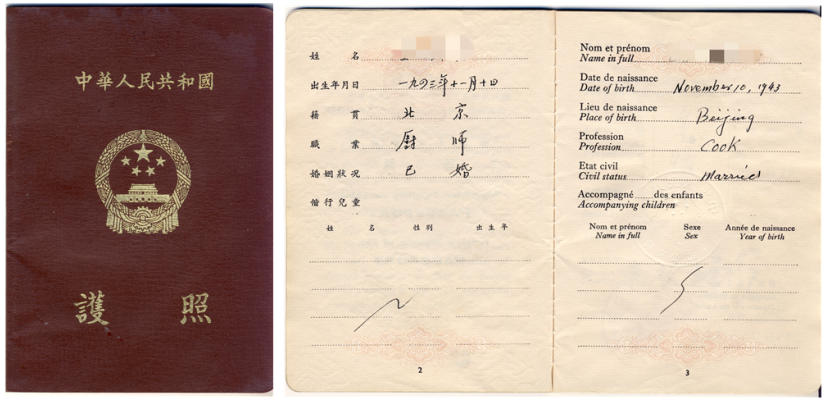 中華人民共和國
護照
姓名
出生年月日 一九四三年十一月十日
籍貫 北京
職業 厨师
婚姻狀况 已婚
偕行兒童
姓名 性別 出生年
2
Nom et prénom
Name in full
Date de naissance
Date of birth November 10, 1943
Lieu de naissance
Place of birth Beijing
Profession
Profession Cook
Etat civil
Civil status Married
Accompagné......des enfants
Accompanying children
Nom et prénom Sexe Année de naissance
Name in full Sex Year of birth
3